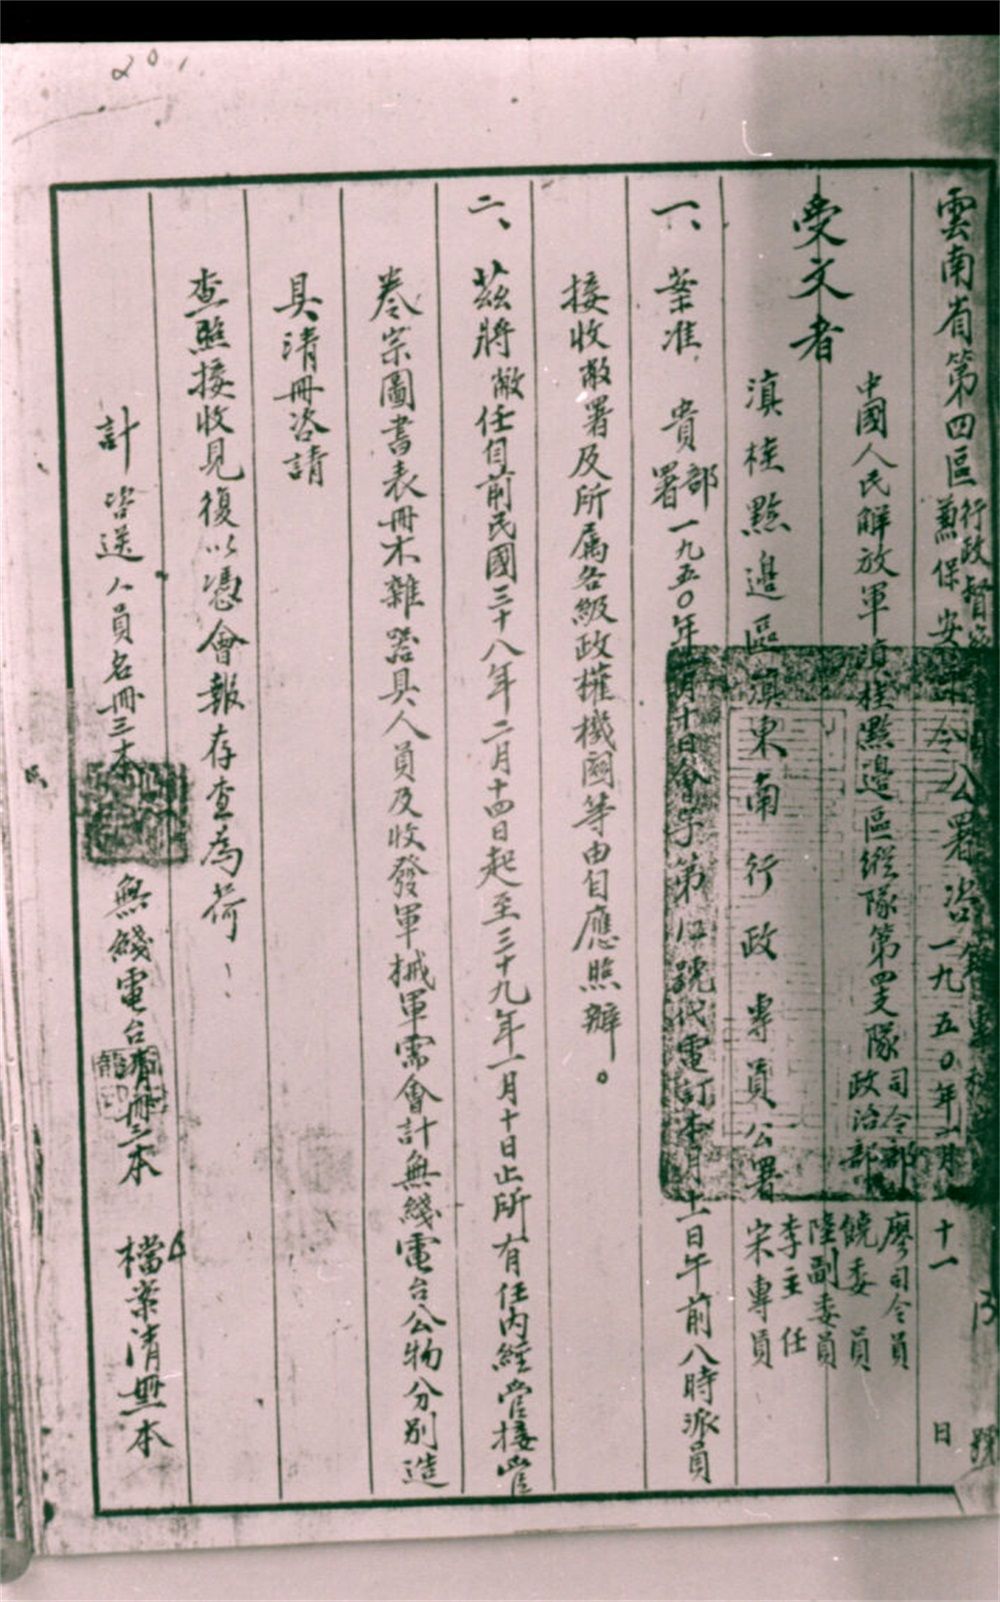 20,
雲南省第四區行政督察
兼保安司令公署咨
一九五〇年一月十一日
號
受文者
中國人民解放軍滇桂黔邊區縱隊第四支隊司令部政治部
廖司令員
饒委員
陸副委員
李主任
滇桂黔邊區滇東南行政專員公署
宋專員
一、案准貴部署一九五〇年一月十日會字第號代電訂本月十一日午前八時派員
接收敝署及所属各級政權機關等由自應照辦。
二、茲將敝任自前民國三十八年二月十四日起至三十九年一月十日止所有任內經管接管
卷宗圖書表冊木雜器具人員及收發軍械軍需會計無綫電台公物分別造
具清冊咨請
查照接收見復以憑會報存查為荷
計咨送人員名冊三本 無綫電台清冊三本 檔案清冊本